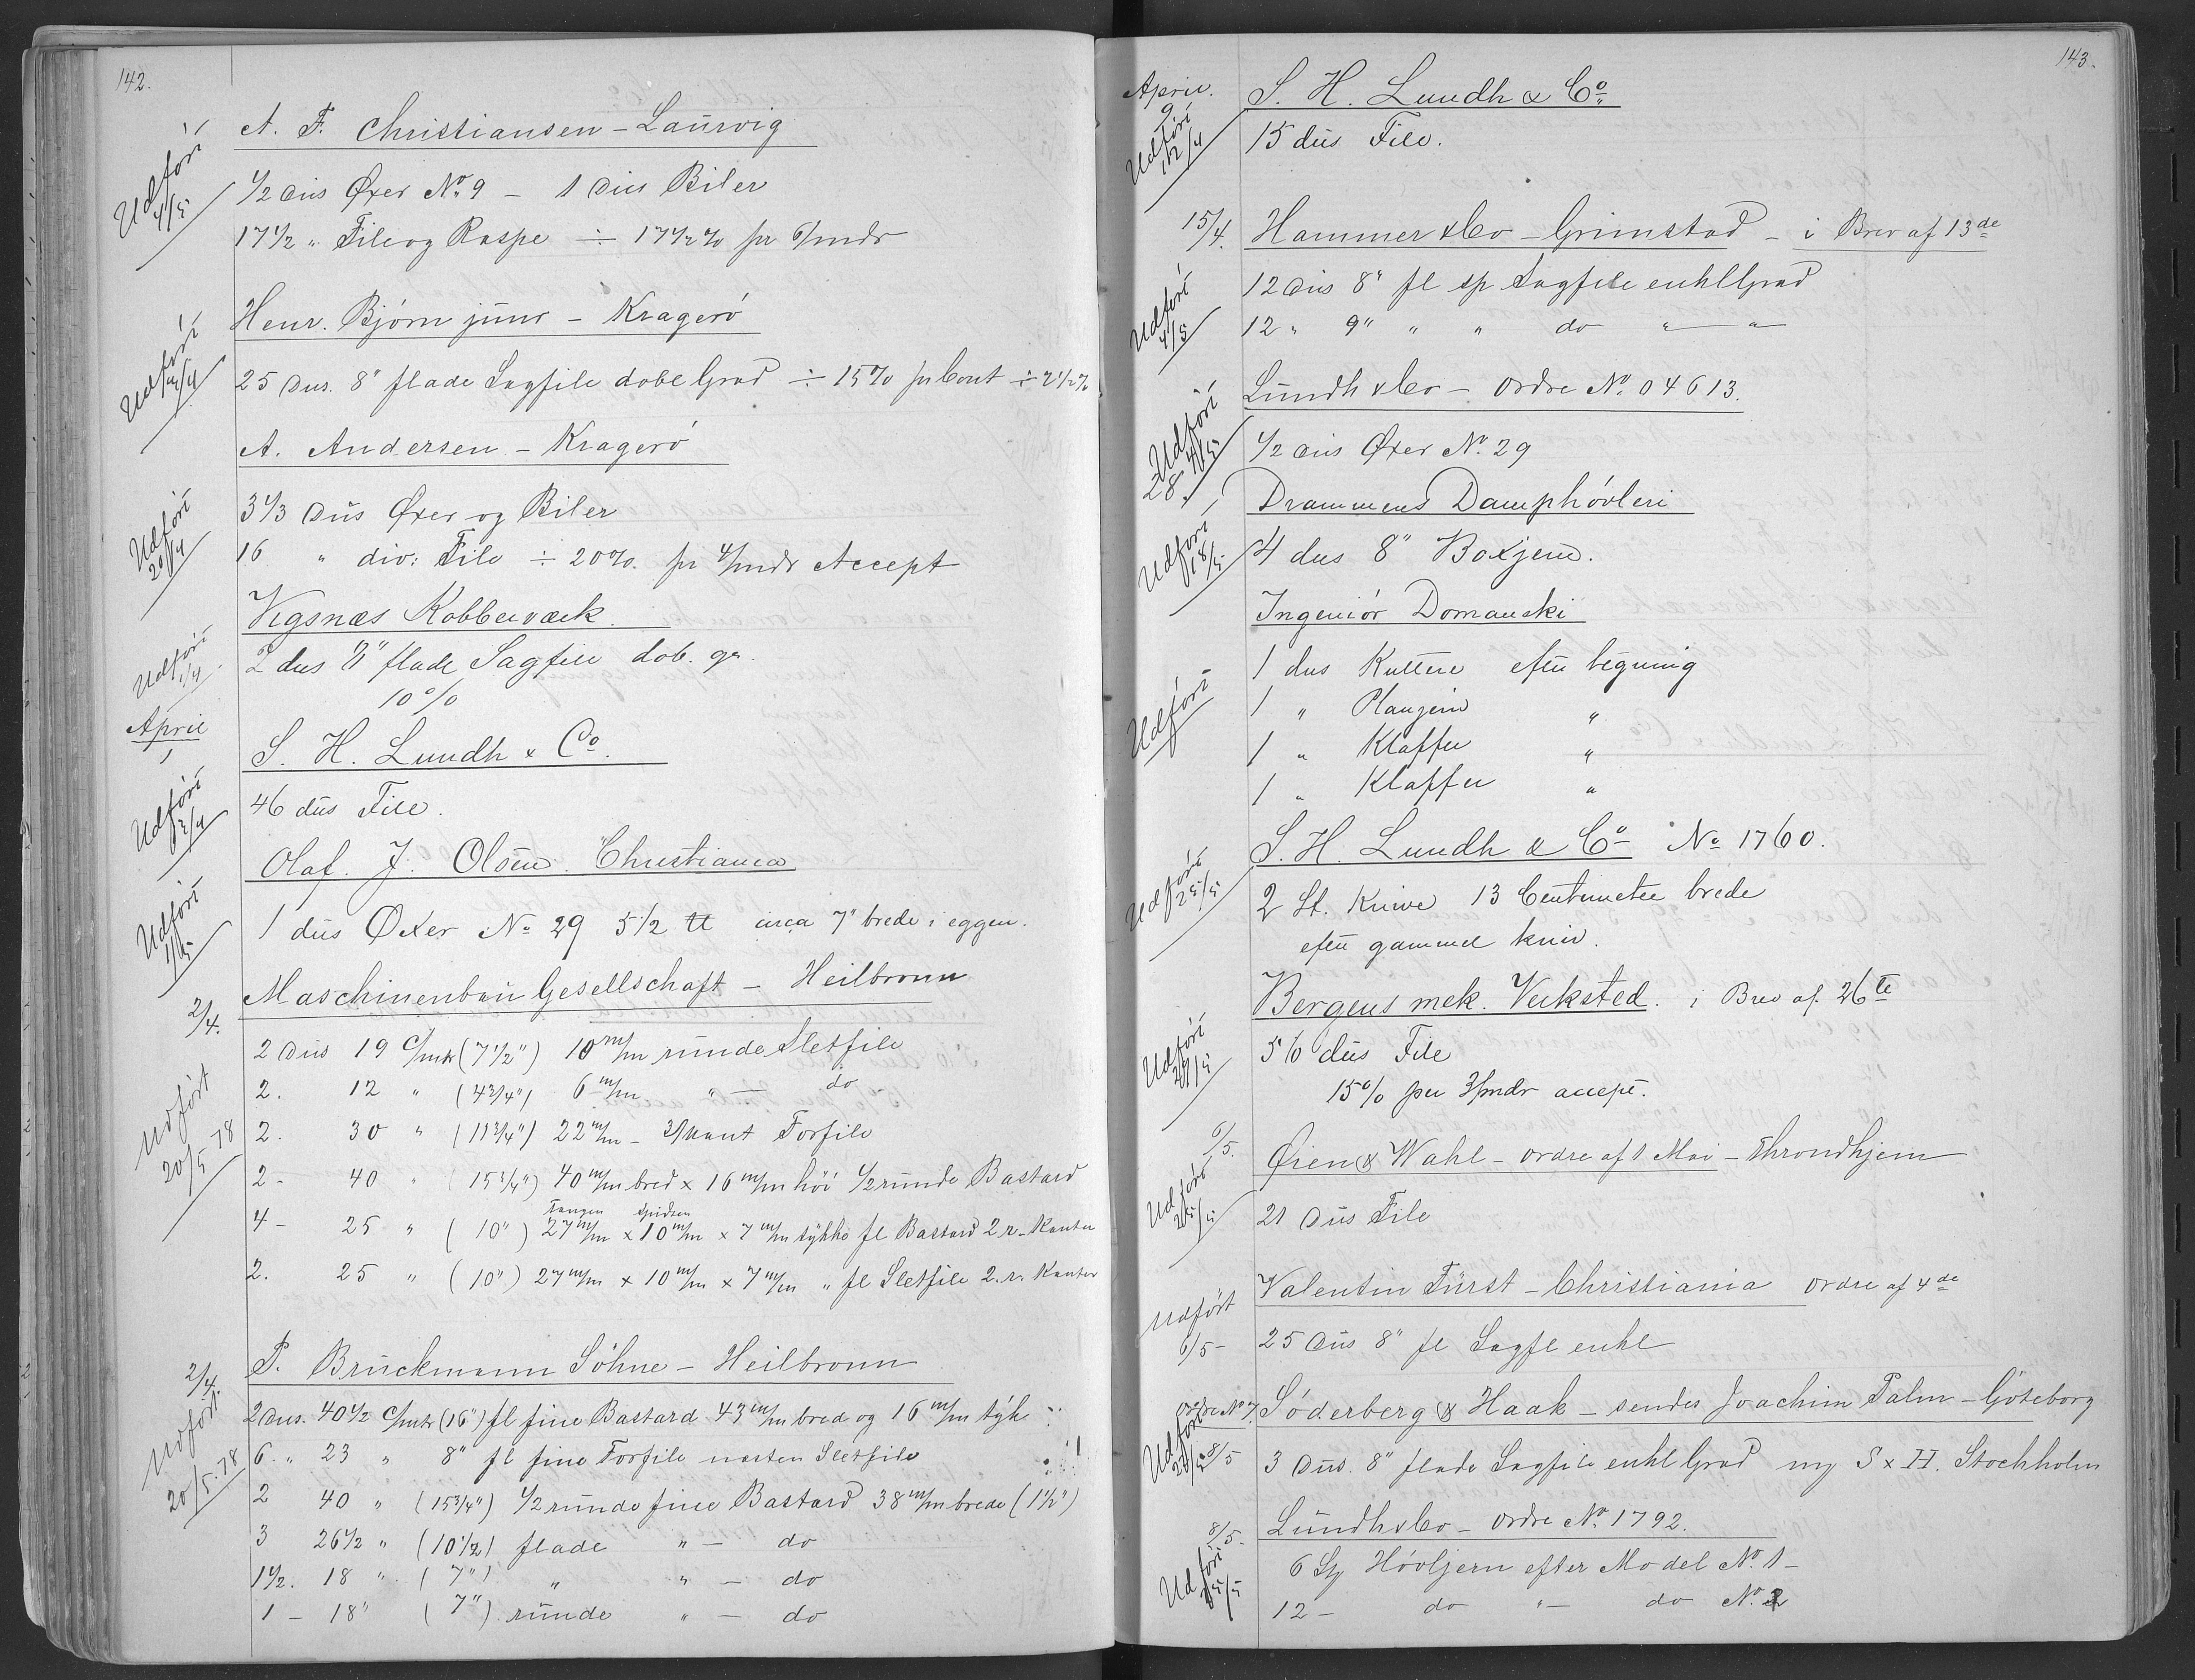 142.
A. F. Christiansen – Laurvig
Udført 4/5
1/2 dus Øxer No. 9 – 1 dus Biler
17 1/2 " File og Raspe ÷ 17 1/2 % pr 6/mdr
Henr. Bjørn junr – Kragerö
Udført /4
25 dus. 8" flade Sagfile dobl Grad ÷ 15% pr Cont ÷ 2 1/2 %
A. Andersen – Kragerö
Udført 20/4
3 1/3 dus Øxer og Biler
16 " div: File ÷ 20%. pr 4/mdr Accept
Vigsnæs Kobberværk.
Udført 1/4
2 dus 8" flade Sagfile dob. gr.
10%
April 1
S. H. Lundh & Co.
Udført /4
46 dus File.
Olaf. J. Olsen. Christiania
Udført 1/5
1 dus Øxer No 29 5 1/2 ℔ circa 7" brede i eggen.
2/4.
Maschinenbau Gesellschaft – Heilbronn
2 dus 19 c/mtr (7 1/2") 10 m/m runde Sletfile
2. 12 " (4 3/4") 6 m/m " — do
Udført 20/5 78
2. 30 " (11 3/4") 22 m/m – 3/kant Forfile
2 - 40 " (15 3/4") 40 m/m bred x 16 m/m höi 1/2 runde Bastard
Tangen spidsen
4 - 25 " (10") 27 m/m x 10 m/m x 7 m/m tykke fl Bastard 2 r. Kanter
2. 25 " (10") 27 m/m x 10 m/m x 7 m/m " fl Sletfile 2. r. Kanter
2/4.
P. Bruckmann Söhne – Heilbronn
Udført 20/5. 78
2 dus. 40 1/2 c/mtr (16") fl fine Bastard 43 m/m bred og 16 m/m tyk
6. " 23 " 8" fl fine Forfile næsten Sletfile
2 40 " (15 3/4") 1/2 runde fine Bastard 38 m/m brede (1 1/2")
3 26 1/2 " (10 1/2) flade " — do
1 1/2. 18 " (7") " " — do
1 – 18 " (7") runde " — do
143.
April. 9
S. H. Lundh & Co.
Udført 12/4
15 dus File.
15/4.
Hammer & Co – Grimstad – i Brev af 13de
Udført 4/5
12 dus 8" fl sp Sagfile enkl Grad
12 " 9" " " do " — "
Lundh & Co – Ordre No. 04613.
Udført 4/5
1/2 dus Øxer No. 29
28.
Drammens Damphövleri
Udført 18/5
4 dus 8" Boxjern.
Ingeniör Domanski
Udført
1 dus Kuttere efter tegning
1 " Klaffer "
1 " Klaffer "
S. H. Lundh & Co No 1760.
Udført 25/5
2 St. Knive 13 Centimeter brede
efter gammel kniv.
Bergens mek. Verksted. i Brev af 26te
Udført 29/5
56 dus File
15% per 3/mdr accept.
6/5.
Øien & Wahl – ordre af 1 Mai – Throndhjem
Udført /5
21 dus File
Valentin Fürst – Christiania ordre af 4de
Udført 6/5 –
25 dus 8" fl Sagfl enkl
ordre No 7.
Söderberg & Haak – sendes Joachim Palm – Göteborg
Udført 8/5
3 dus. 8" flade Sagfile enkl Grad mrk S x H. Stockholm
8/5.
Lundh & Co – Ordre No. 1792.
Udført 25/5
6 St Hövljern efter Model No. 1 –
12 – do " — do No. 2